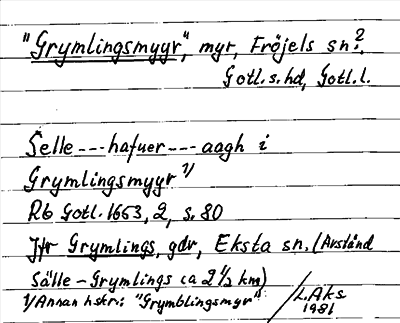 "Grymlingsmyyr", myr, Fröjels sn?.
Gotl. s. hd, Gotl. l.
Selle --- hafuer --- aagh i
Grymlingsmyyr 1/
Rb Gotl. 1653, 2, s. 80
Jfr Grymlings, gdr, Eksta sn. (Avstånd
Sälle - Grymlings ca 2 1/2 km)
1/ Annan hskr: "Grymblingsmyr"
L. Aks
1981